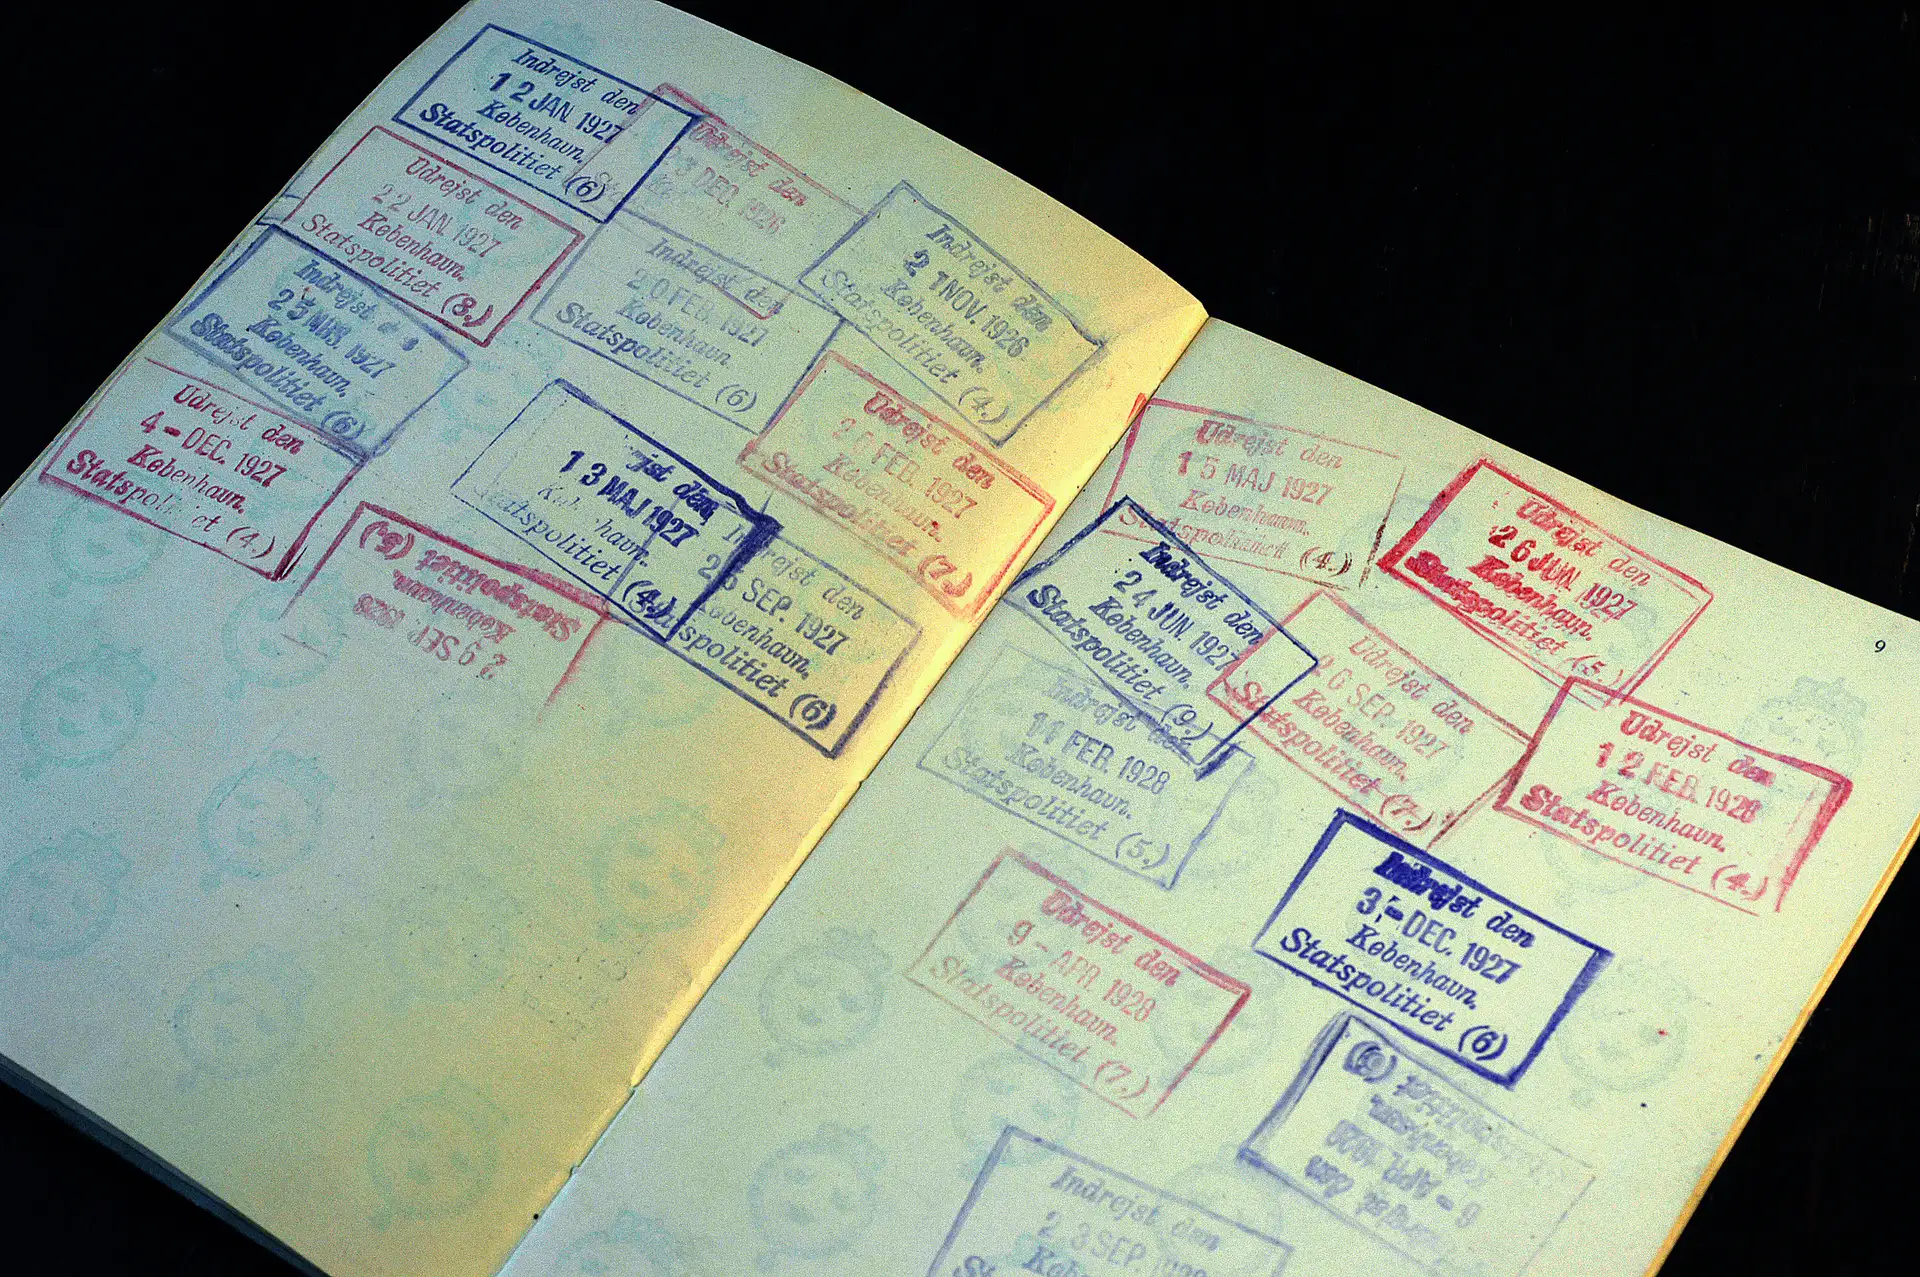 Indrejst den
12 JAN. 1927
København.
Statspolitiet (6)
Udrejst den
3 DEC. 1926
Udrejst den
22 JAN. 1927
København.
Statspolitiet (8.)
Indrejst den
20 FEB. 1927
København.
Statspolitiet (6)
Indrejst den
21 NOV. 1926
København.
Statspolitiet (4.)
Indrejst
25 MAR. 1927
København.
Statspolitiet (6)
Udrejst den
4 - DEC. 1927
København.
Statspolitiet (4.)
den
13 MAJ 1927
Statspolitiet (4.)
Udrejst den
FEB. 1927
København.
Statspolitiet (7.)
Indrejst den
26 SEP. 1927
København.
Statspolitiet (6)
29 SEP. 1928
København.
Statspolitiet (5.)
Udrejst den
15 MAJ 1927
København.
Statspolitiet (4.)
Udrejst den
26 JUN. 1927
København.
Statspolitiet (5.)
9
Indrejst den
24 JUN. 1927
København.
Statspolitiet (9.)
Udrejst den
26 SEP. 1927
København.
Statspolitiet (7.)
Indrejst den
11 FEB. 1928
København.
Statspolitiet (5.)
Udrejst den
12 FEB. 1928
København.
Statspolitiet (4.)
Indrejst den
3 - DEC. 1927
København.
Statspolitiet (6)
Udrejst den
9 - APR. 1928
København.
Statspolitiet (7.)
Indrejst den
6 - APR. 1928
København.
Statspolitiet (6)
Indrejst den
23 SEP.